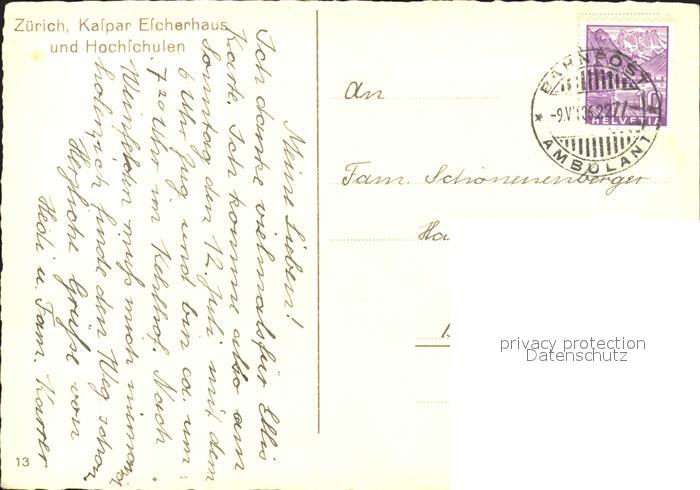 Zürich, Kaspar Escherhaus
und Hochschulen
Meine Lieben!
Ich danke vielmals für Ellis
Karte. Ich komme also am
Sonntag den 12. Juli mit dem
6 Uhr Zug und bin ca. um
7 20 Uhr im Kehlhof. Nach
Weinfelden muß mich niemand
holen, ich finde den Weg schon
Herzliche Grüße von
Hedi u. Fam. Karrer
13
An
Fam. Schönenberger
Ha
BAHNPOST
-9.VII36
AMBULANT
10
HELVETIA
privacy protection
Datenschutz